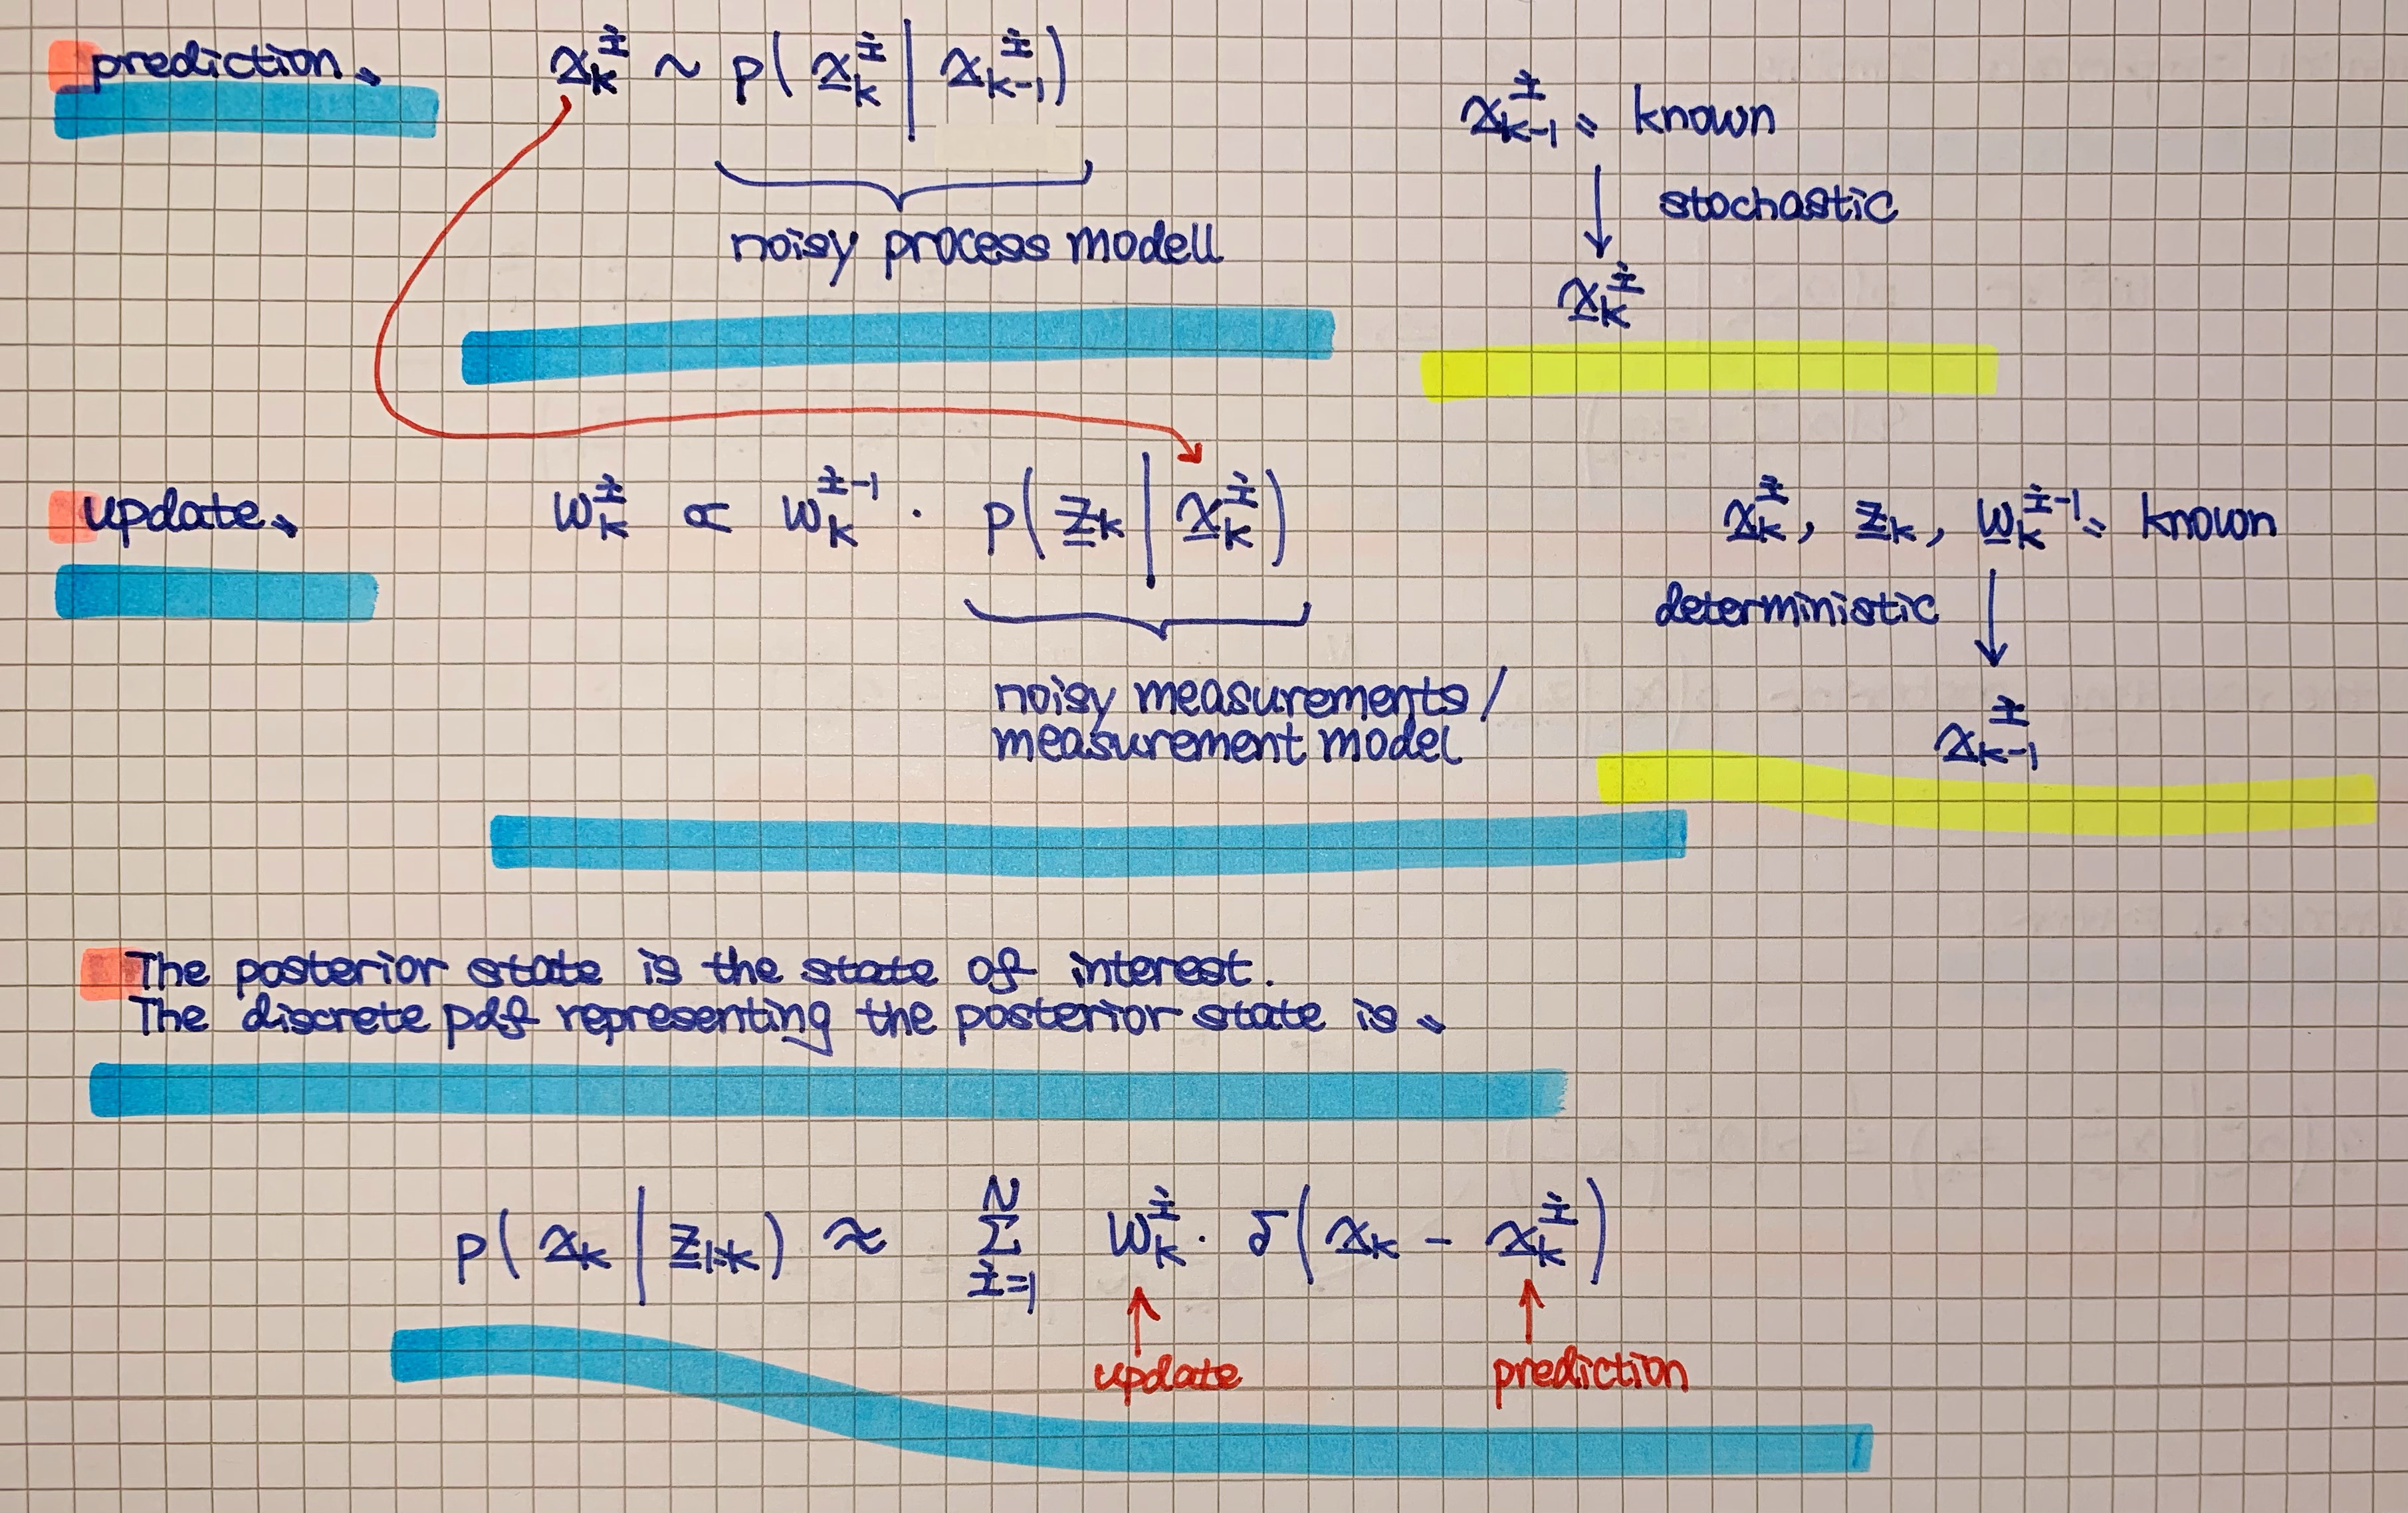 prediction: x_k^i ~ p( x_k^i | x_{k-1}^i )
noisy process modell
x_{k-1}^i : known
↓ stochastic
x_k^i
update: w_k^i ∝ w_k^{i-1} · p( z_k | x_k^i )
noisy measurements /
measurement model
x_k^i, z_k, w_k^{i-1} : known
deterministic ↓
x_{k-1}^i
The posterior state is the state of interest.
The discrete pdf representing the posterior state is :
p( x_k | z_{1:k} ) ≈ Σ_{i=1}^N w_k^i · δ( x_k - x_k^i )
↑ update
↑ prediction